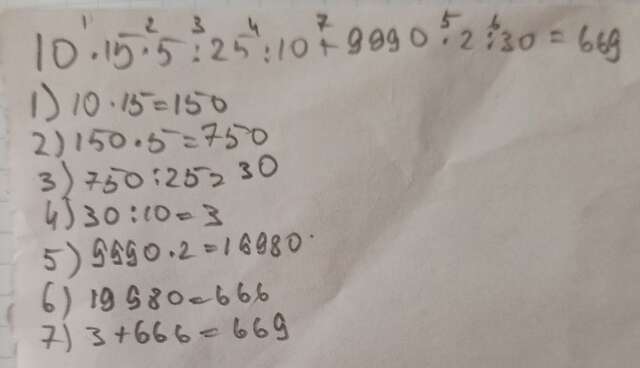 1 2 3 4 7 5 6
10 · 15 · 5 : 25 : 10 + 9990 · 2 : 30 = 669
1) 10 · 15 = 150
2) 150 · 5 = 750
3) 750 : 25 = 30
4) 30 : 10 = 3
5) 9990 · 2 = 19980
6) 19980 = 666
7) 3 + 666 = 669